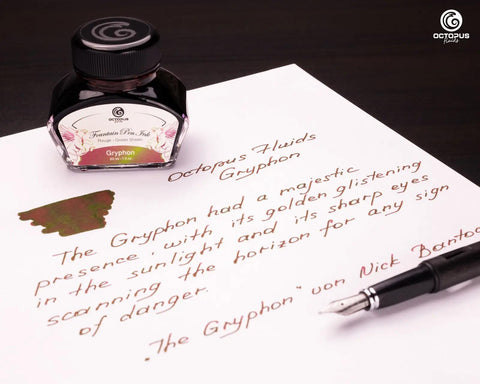 OCTOPUS
fluids
OCTOPUS
Fountain Pen Ink
Rouge - Green Sheen
Gryphon
30 ml - 1 fl. oz.
Octopus Fluids
Gryphon
The Gryphon had a majestic
presence, with its golden glistening
in the sunlight and its sharp eyes
scanning the horizon for any sign
of danger.
„The Gryphon“ von Nick Bantoc